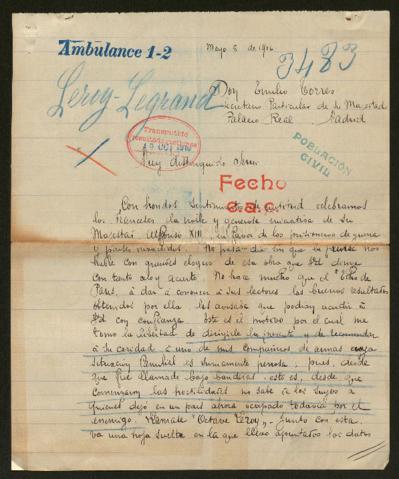 Ambulance 1-2
Mayo 5 de 1916
3483
Leroy-Legrand
Don Emilio Torres
Secretario Particular de Su Majestad
Palacio Real Madrid
Transmitido
POBLACIÓN
CIVIL
Muy distinguido Señor
Fecho
Con hondos sentimientos de gratitud celebramos
los franceses la noble y generosa iniciativa de Su
Majestad Alfonso XIII en favor de los prisioneros de guerra
y países invadidos. No pasa dia en que la prensa nos
hable con grandes elogios de esa obra que Vd dirige
con tanto celo y acierto. No hace mucho que el "Echo de
Paris, á dar á conocer á sus lectores los buenos resultados
obtenidos por ella les avisaba que podian acudir á
Vd con confianza. Este es el motivo por el cual me
tomo la libertad de dirigirle la presente y de recomendar
á su caridad á uno de mis compañeros de armas cuya
situacion familial es sumamente penosa, pues, desde
que fué llamado bajo banderas esto es, desde que
comenzaron las hostilidades no sabe de los suyos á
quienes dejó en un país ahora ocupado todavia por el
enemigo. Llamase "Octave Leroy". Junto con esta
va una hoja suelta en la que llevo apuntados los datos